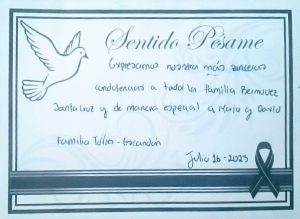 Sentido Pésame
Expresamos nuestra más sinceras
condolencias a toda la familia Bermudez
Santacruz y de manera especial a Maia y David
Familia Tulles - Escandón
Julio 26 - 2023